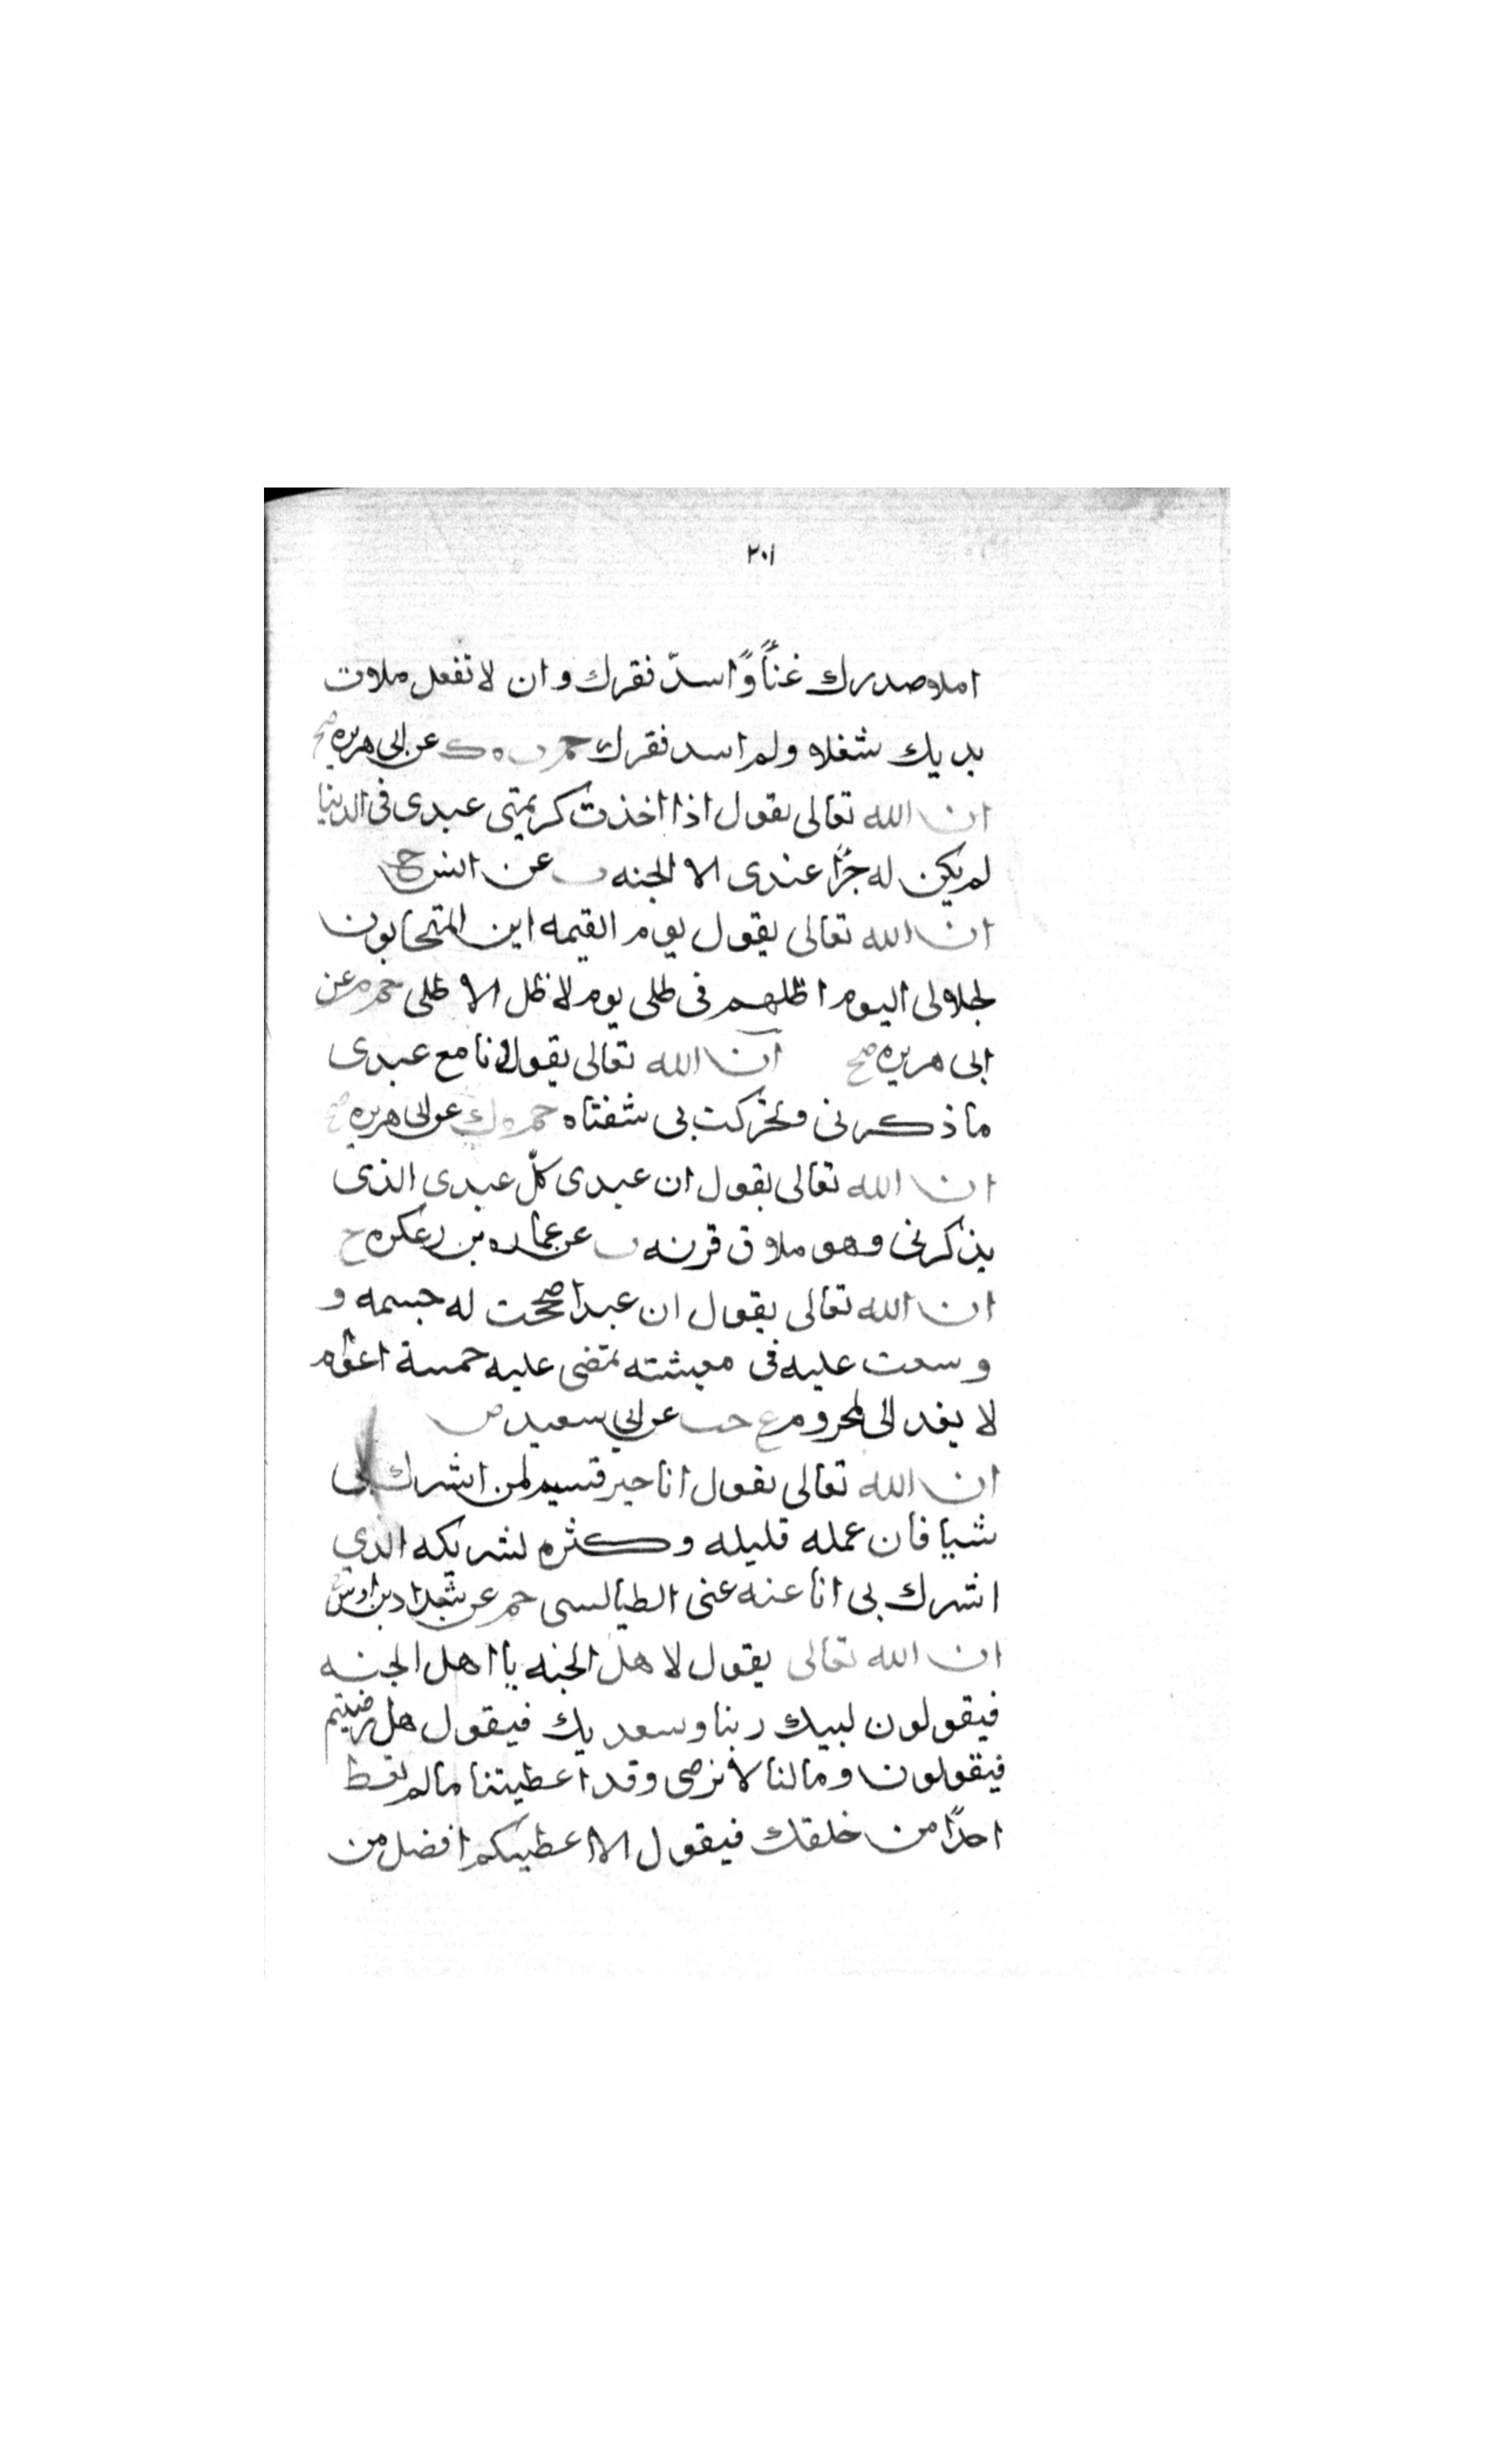 ٢٠١
املا صدرك غنأً وًاسدّ فقرك وان لا تفعل ملات
يديك شغلا ولم اسد فقرك حم ت ه ك عن ابى هريره صح
ان الله تعالى يقول اذا اخذت كريمتى عبدى فى الدنيا
لم يكن له جزًا عندى الا الجنه ت عن انس ح
ان الله تعالى يقول يوم القيمه اين المتحابون
لجلالى اليوم اظلهم فى ظلى يوم لا ظل الا ظلى حم م عن
ابى هريره صح ان الله تعالى يقول انا مع عبدى
ما ذكرنى وتحركت بى شفتاه حم ه ك عن ابى هريره صح
ان الله تعالى يقول ان عبدى كلّ عبدى الذى
يذكرنى وهو ملاق قرنه ت عن عماره بن زعكره ح
ان الله تعالى يقول ان عبدا صححت له جسمه و
وسعت عليه فى معيشته تمضى عليه خمسة اعوام
لا يفد الى لمحروم ع حب عن ابى سعيد ض
ان الله تعالى يقول انا خير قسيم لمن اشرك بى
شيا فان عمله قليله وكثره لشريكه الذي
اشرك بى انا عنه غنى الطيالسى حم عن شداد بن اوس
ان الله تعالى يقول لاهل الجنه يا اهل الجنه
فيقولون لبيك ربنا وسعديك فيقول هل رضيتم
فيقولون ومالنا لا نرضى وقد اعطيتنا مالم تعط
احدًا من خلقك فيقول الا اعطيكم افضل من